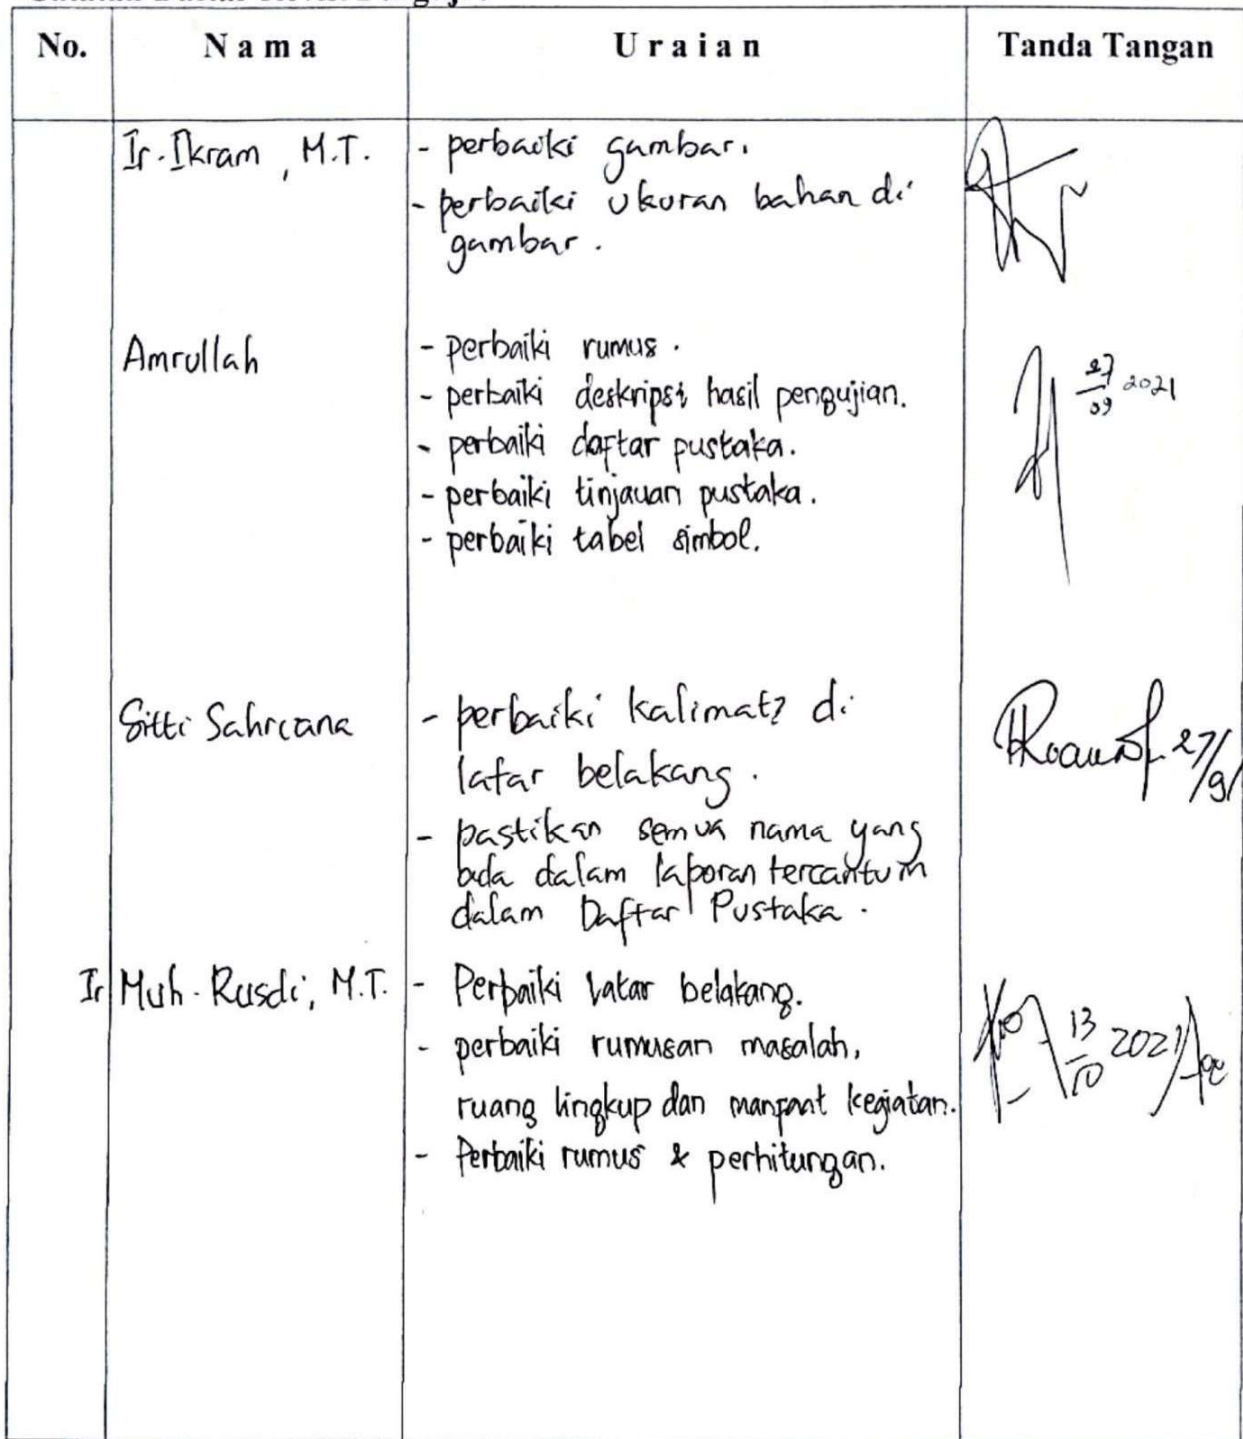 No. Nama Uraian Tanda Tangan
Ir. Ikram, M.T. - perbaiki gambar.
- perbaiki ukuran bahan di
gambar.
Amrullah - perbaiki rumus.
- perbaiki deskripsi hasil pengujian.
- perbaiki daftar pustaka.
- perbaiki tinjauan pustaka.
- perbaiki tabel simbol.
27/09 2021
Sitti Sahriana - perbaiki kalimat2 di
latar belakang.
- pastikan semua nama yang
ada dalam laporan tercantum
dalam Daftar Pustaka.
27/9/
Ir Muh. Rusdi, M.T. - Perbaiki latar belakang.
- perbaiki rumusan masalah,
ruang lingkup dan manfaat kegiatan.
- Perbaiki rumus & perhitungan.
13/10 2021